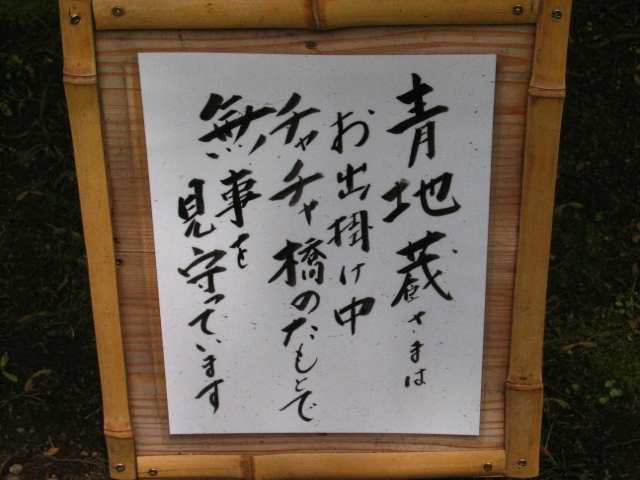 青地蔵さまは
お出掛け中
チャチャ橋のたもとで
無事を
見守っています